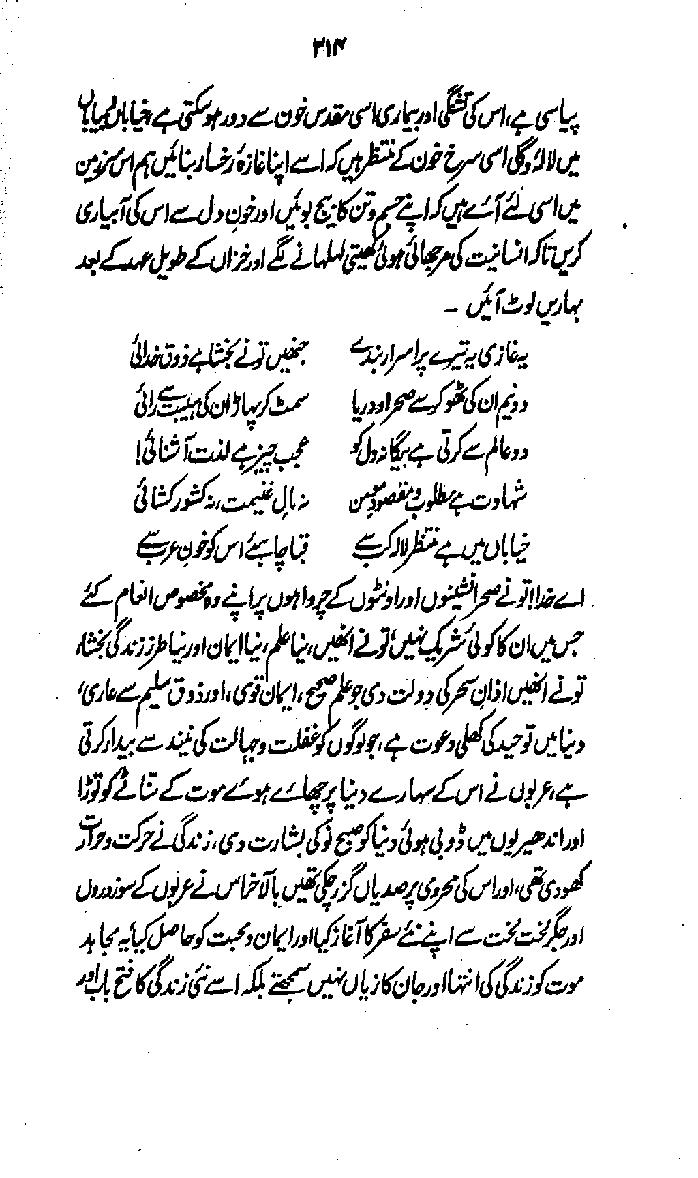 ۲۱۴
پیاسی ہے، اس کی تشنگی اور بیماری اسی مقدس خون سے دور ہوسکتی ہے، خیاباں وبیاباں
میں لالہ وگل اسی سرخ خون کے منتظر ہیں کہ اسے اپنا غازۂ رخسار بنائیں ہم اس سرزمین
میں اسی لئے آئے ہیں کہ اپنے جسم وتن کا بیج بوئیں اور خونِ دل سے اس کی آبیاری
کریں تاکہ انسانیت کی مرجھائی ہوئی کھیتی لہلہانے لگے اور خزاں کے طویل عہد کے بعد
بہاریں لوٹ آئیں ۔
یہ غازی یہ تیرے پراسرار بندے جنھیں تونے بخشا ہے ذوق خدائی
دونیم ان کی ٹھوکر سے صحرا ودریا سمٹ کر پہاڑ ان کی ہیبت سے رائی
دوعالم سے کرتی ہے بیگانہ دل کو عجب چیز ہے لذت آشنائی!
شہادت ہے مطلوب ومقصود مومن نہ مالِ غنیمت، نہ کشور کشائی
خیاباں میں ہے منتظر لالہ کب سے قبا چاہئے اس کو خون عرب سے
اے خدا! تونے صحرا نشینوں اور اونٹوں کے چرواہوں پر اپنے وہ مخصوص انعام کئے
جس میں ان کا کوئی شریک نہیں، تونے انھیں، نیا علم، نیا ایمان اور نیا طرز زندگی بخشا،
تونے انھیں اذان سحر کی دولت دی جو علم صحیح، ایمان قوی، اور ذوق سلیم سے عاری،
دنیا میں توحید کی کھلی دعوت ہے، جو لوگوں کو غفلت وجہالت کی نیند سے بیدار کرتی
ہے، عربوں نے اس کے سہارے دنیا پر چھائے ہوئے موت کے سناٹے کو توڑا
اور اندھیریوں میں ڈوبی ہوئی دنیا کو صبح نو کی بشارت دی، زندگی نے حرکت وحرارت
کھودی تھی، اور اس کی محرومی پر صدیاں گزر چکی تھیں بالآخر اس نے عربوں کے سوزدروں
اور جگر لخت لخت سے اپنے نئے سفر کا آغاز کیا اور ایمان ومحبت کو حاصل کیا یہ مجاہد
موت کو زندگی کی انتہا اور جان کا زیاں نہیں سمجھتے بلکہ اسے نئی زندگی کا فتح باب اور